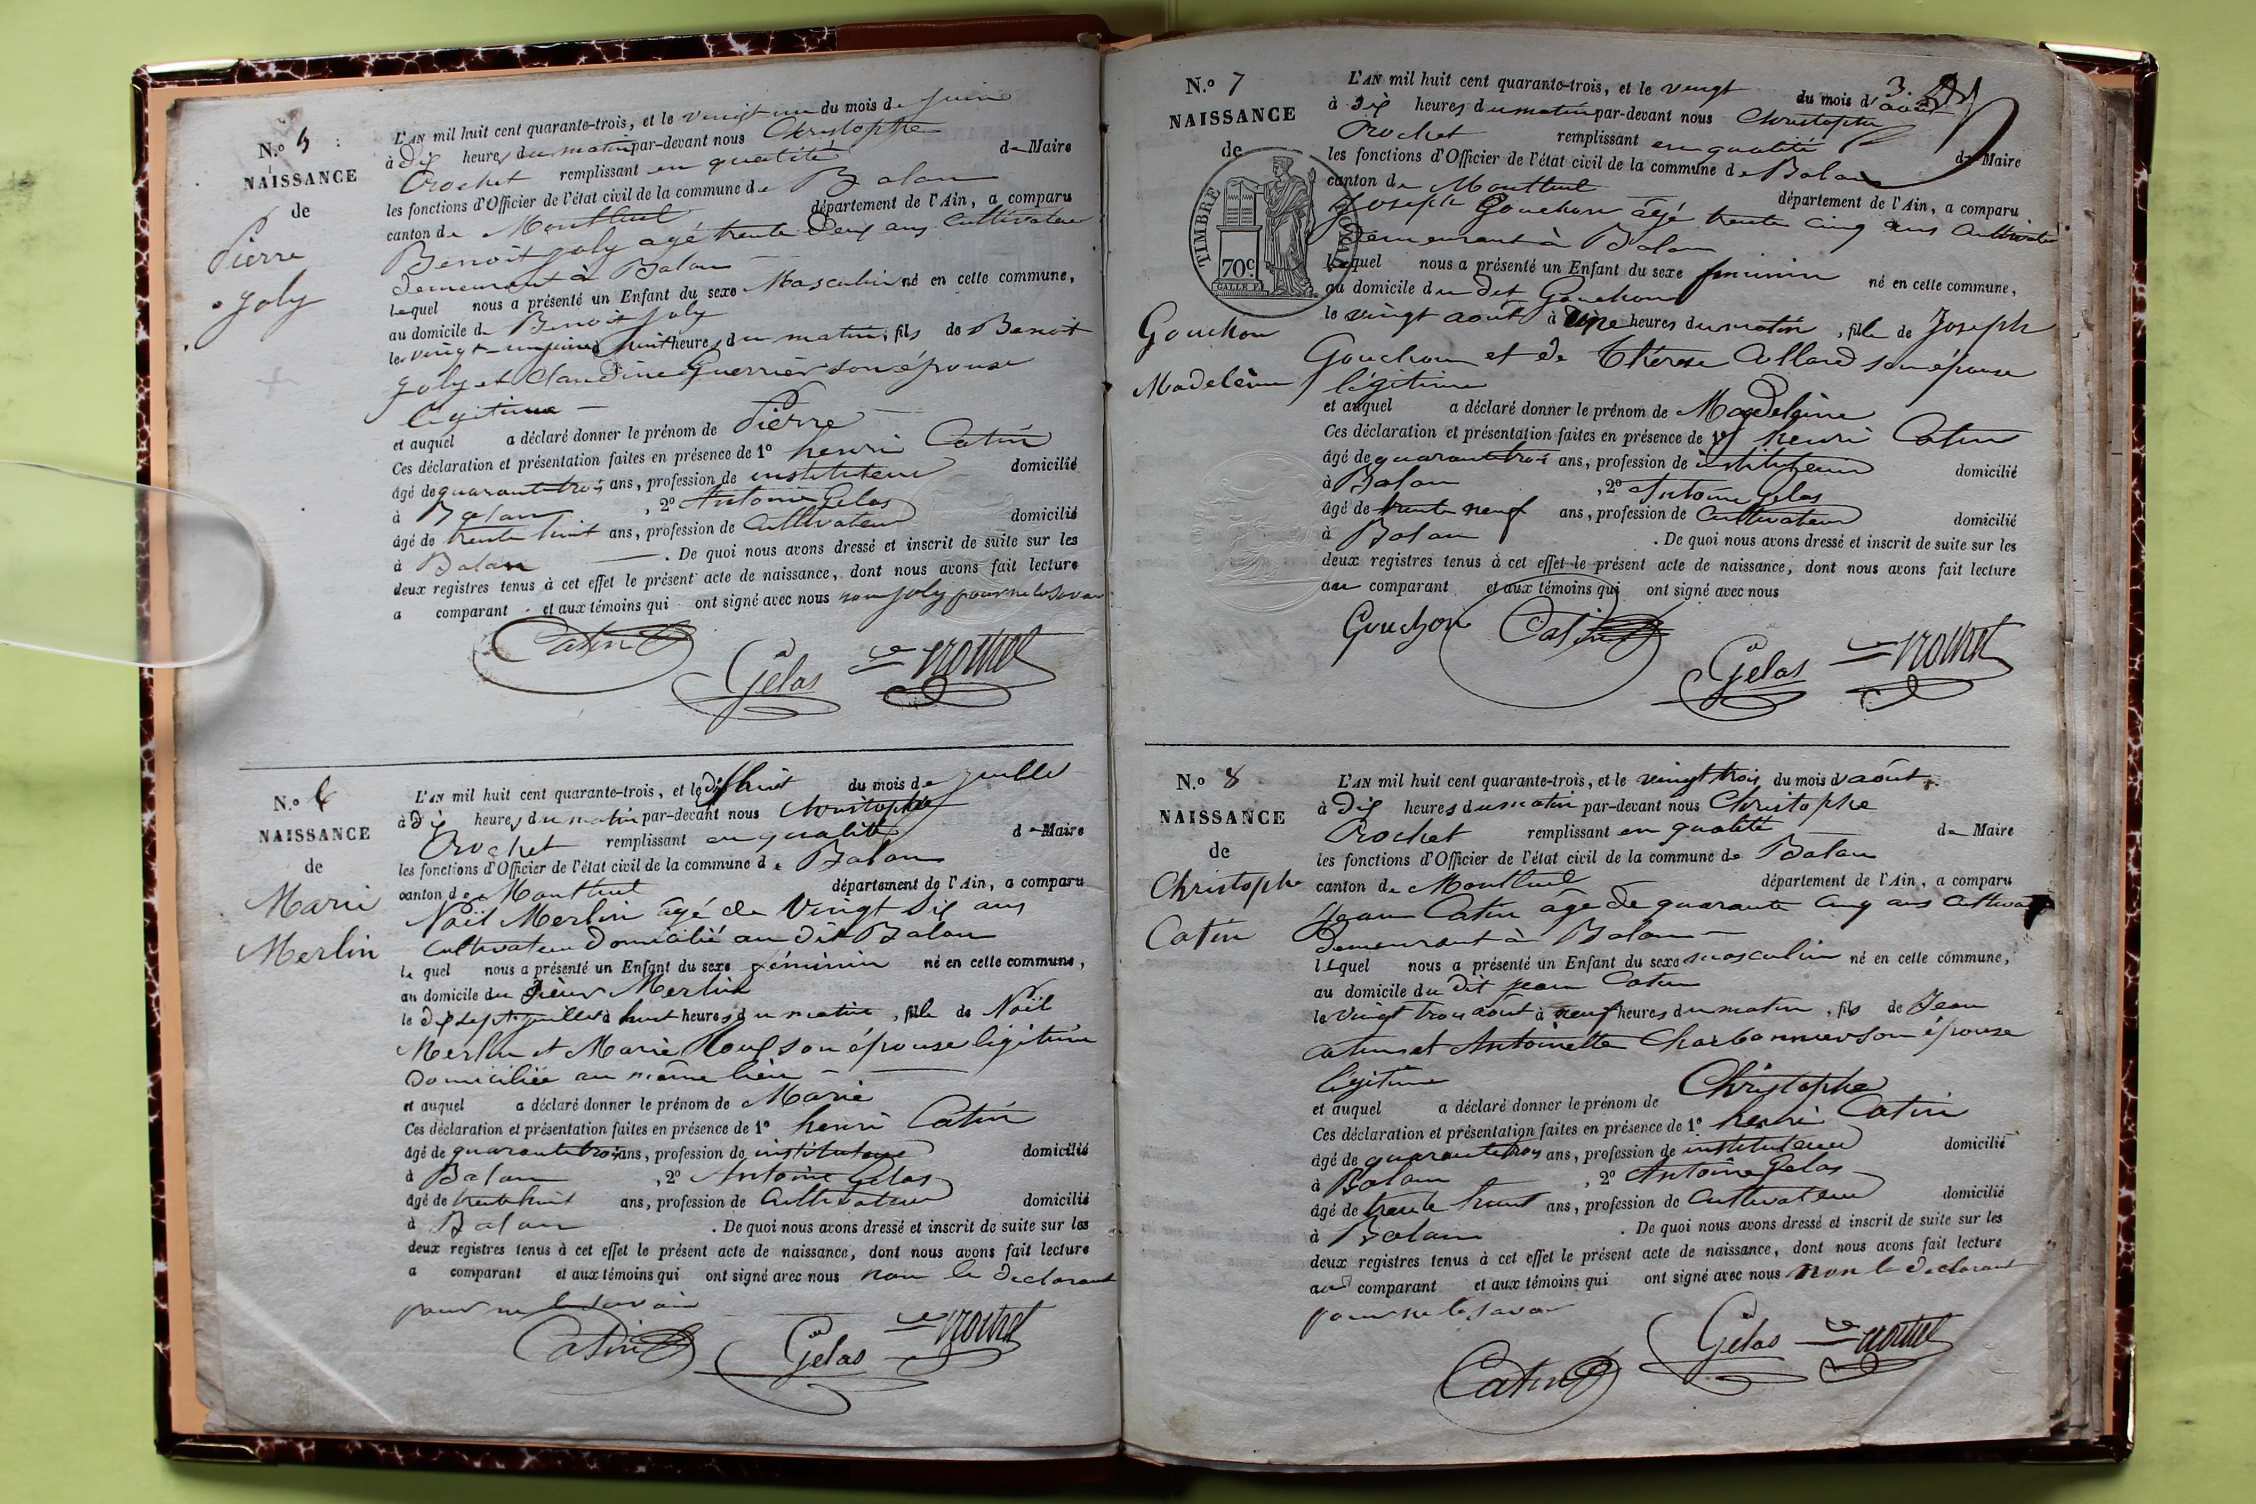 N.º 5
NAISSANCE
de
Pierre
Joly
L'AN mil huit cent quarante-trois, et le vingt un du mois de juin
à dix heures du matin par-devant nous Christophe
Crochet remplissant en qualité de Maire
les fonctions d'Officier de l'état civil de la commune de Balan
canton de Montluel département de l'Ain, a comparu
Benoit Joly agé trente deux ans Cultivateur
demeurant à Balan
lequel nous a présenté un Enfant du sexe Masculin né en cette commune,
au domicile de Benoit Joly
le vingt-un juin à huit heures du matin, fils de Benoit
Joly et Claudine Guerrier son épouse
légitime
et auquel a déclaré donner le prénom de Pierre
Ces déclaration et présentation faites en présence de 1º henri Catin
âgé de quarante trois ans, profession de instituteur domicilié
à Balan, 2º Antoine Gelas
âgé de trente huit ans, profession de Cultivateur domicilié
à Balan. De quoi nous avons dressé et inscrit de suite sur les
deux registres tenus à cet effet le présent acte de naissance, dont nous avons fait lecture
a comparant et aux témoins qui ont signé avec nous non Joly pour ne le savoir
Catin
Gelas
Crochet
N.º 6
NAISSANCE
de
Marie
Merlin
L'AN mil huit cent quarante-trois, et le dix huit du mois de juillet
à dix heures du matin par-devant nous Christophe
Crochet remplissant en qualité de Maire
les fonctions d'Officier de l'état civil de la commune de Balan
canton de Montluel département de l'Ain, a comparu
Noël Merlin âgé de Vingt six ans
Cultivateur domicilié au dit Balan
le quel nous a présenté un Enfant du sexe féminin né en cette commune,
au domicile du sieur Merlin
le dix sept juillet à huit heures du matin, fille de Noël
Merlin et Marie Roux son épouse légitime
domiciliée au même lieu
et auquel a déclaré donner le prénom de Marie
Ces déclaration et présentation faites en présence de 1º henri Catin
âgé de quarante trois ans, profession de instituteur domicilié
à Balan, 2º Antoine Gelas
âgé de trente huit ans, profession de Cultivateur domicilié
à Balan. De quoi nous avons dressé et inscrit de suite sur les
deux registres tenus à cet effet le présent acte de naissance, dont nous avons fait lecture
a comparant et aux témoins qui ont signé avec nous non le declarant
pour ne le savoir
Catin
Gelas
Crochet
N.º 7
NAISSANCE
de
TIMBRE ROYAL
70c
Gouchon
Madeleine
L'AN mil huit cent quarante-trois, et le vingt du mois d'août
à dix heures du matin par-devant nous Christophe
Crochet remplissant en qualité de Maire
les fonctions d'Officier de l'état civil de la commune de Balan
canton de Montluel département de l'Ain, a comparu
Joseph Gouchon âgé trente cinq ans Cultivateur
demeurant à Balan
lequel nous a présenté un Enfant du sexe feminin né en cette commune,
au domicile du dit Gouchon
le vingt août à une heures du matin, fille de Joseph
Gouchon et de Thérese Collard son épouse
légitime
et auquel a déclaré donner le prénom de Madeleine
Ces déclaration et présentation faites en présence de 1º henri Catin
âgé de quarante trois ans, profession de instituteur domicilié
à Balan, 2º Antoine Gelas
âgé de trente neuf ans, profession de Cultivateur domicilié
à Balan. De quoi nous avons dressé et inscrit de suite sur les
deux registres tenus à cet effet le présent acte de naissance, dont nous avons fait lecture
au comparant et aux témoins qui ont signé avec nous
Gouchon
Catin
Gelas
Crochet
N.º 8
NAISSANCE
de
Christophe
Catin
L'AN mil huit cent quarante-trois, et le vingt trois du mois d'août
à dix heures du matin par-devant nous Christophe
Crochet remplissant en qualité de Maire
les fonctions d'Officier de l'état civil de la commune de Balan
canton de Montluel département de l'Ain, a comparu
Jean Catin âgé de quarante cinq ans Cultivateur
demeurant à Balan
lequel nous a présenté un Enfant du sexe masculin né en cette commune,
au domicile du dit Jean Catin
le vingt trois août à neuf heures du matin, fils de Jean
Catin et Antoinette Charbonnier son épouse
légitime
et auquel a déclaré donner le prénom de Christophe
Ces déclaration et présentation faites en présence de 1º henri Catin
âgé de quarante trois ans, profession de instituteur domicilié
à Balan, 2º Antoine Gelas
âgé de trente huit ans, profession de Cultivateur domicilié
à Balan. De quoi nous avons dressé et inscrit de suite sur les
deux registres tenus à cet effet le présent acte de naissance, dont nous avons fait lecture
au comparant et aux témoins qui ont signé avec nous non le declarant
pour ne le savoir
Catin
Gelas
Crochet